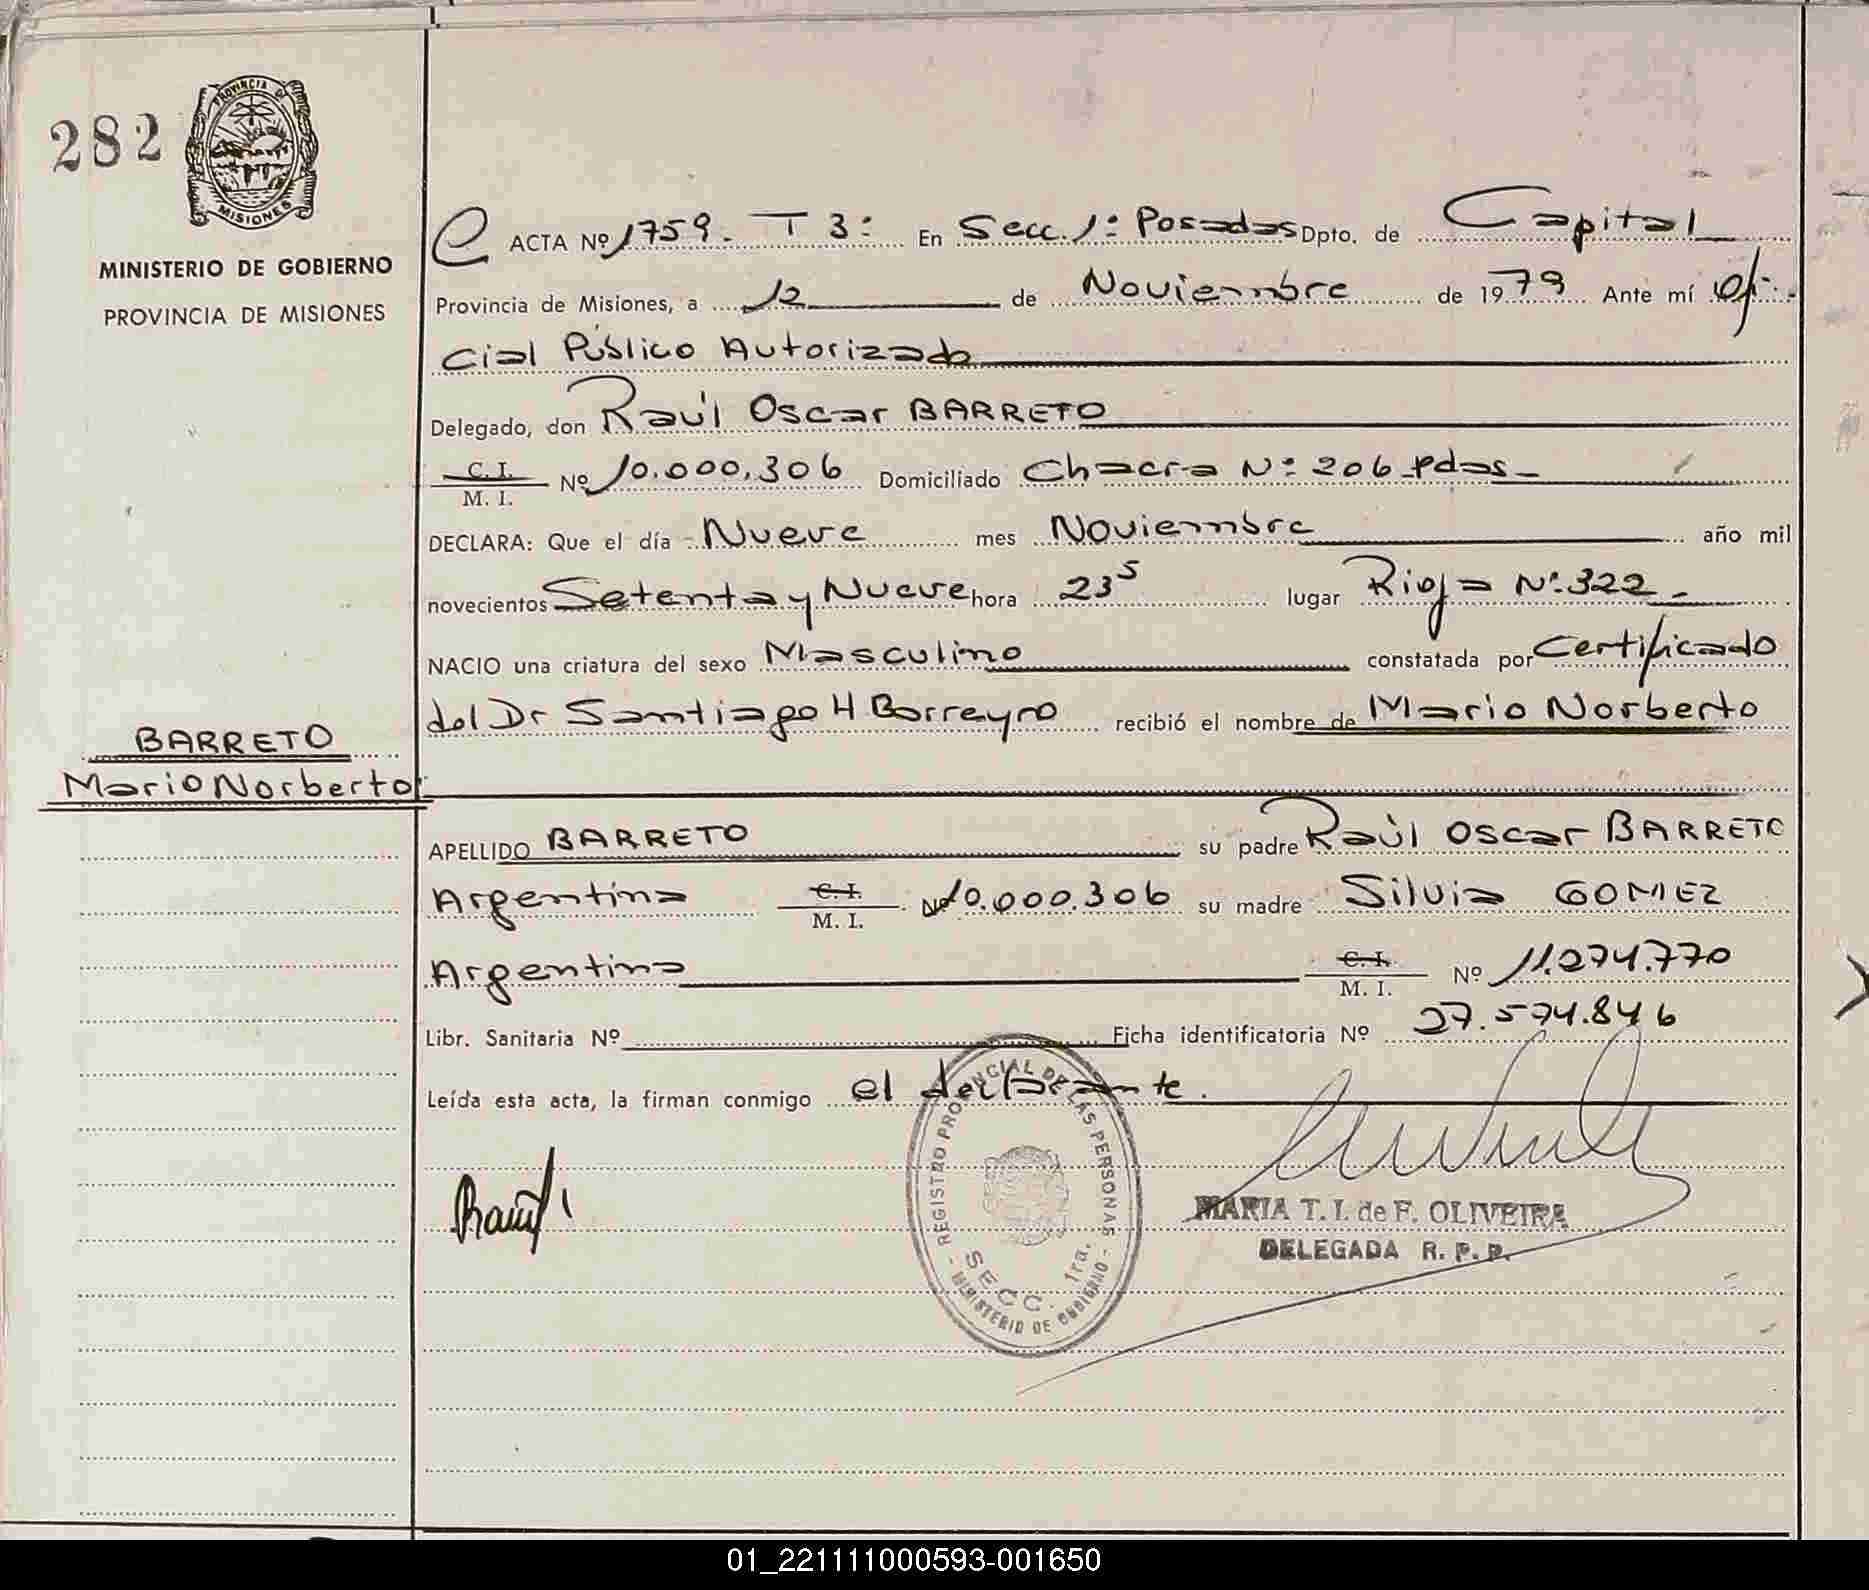 282
PROVINCIA DE
MISIONES
MINISTERIO DE GOBIERNO
PROVINCIA DE MISIONES
ACTA Nº 1759. T 3: En Secc. 1: Posadas Dpto. de Capital
Provincia de Misiones, a 12 de Noviembre de 1979 Ante mí Ofi-
cial Público Autorizado
Delegado, don Raúl Oscar BARRETO
C. I.
M. I. Nº 10.000.306 Domiciliado Chacra Nº 206 Pdas-
DECLARA: Que el día Nueve mes Noviembre año mil
novecientos Setenta y Nueve hora 23 5 lugar Rioja Nº 322-
NACIO una criatura del sexo Masculino constatada por Certificado
del Dr Santiago H Borreyro recibió el nombre de Mario Norberto
BARRETO
Mario Norberto
APELLIDO BARRETO su padre Raúl Oscar BARRETO
Argentina C. I. M. I. Nº 10.000.306 su madre Silvia GOMEZ
Argentina C. I. M. I. Nº 11.274.770
Libr. Sanitaria Nº Ficha identificatoria Nº 27.574.846
Leída esta acta, la firman conmigo el declarante.
REGISTRO PROVINCIAL DE LAS PERSONAS
SECC. 1ra.
- MINISTERIO DE GOBIERNO -
MARIA T. I. de F. OLIVEIRA
DELEGADA R. P. P.
01_221111000593-001650